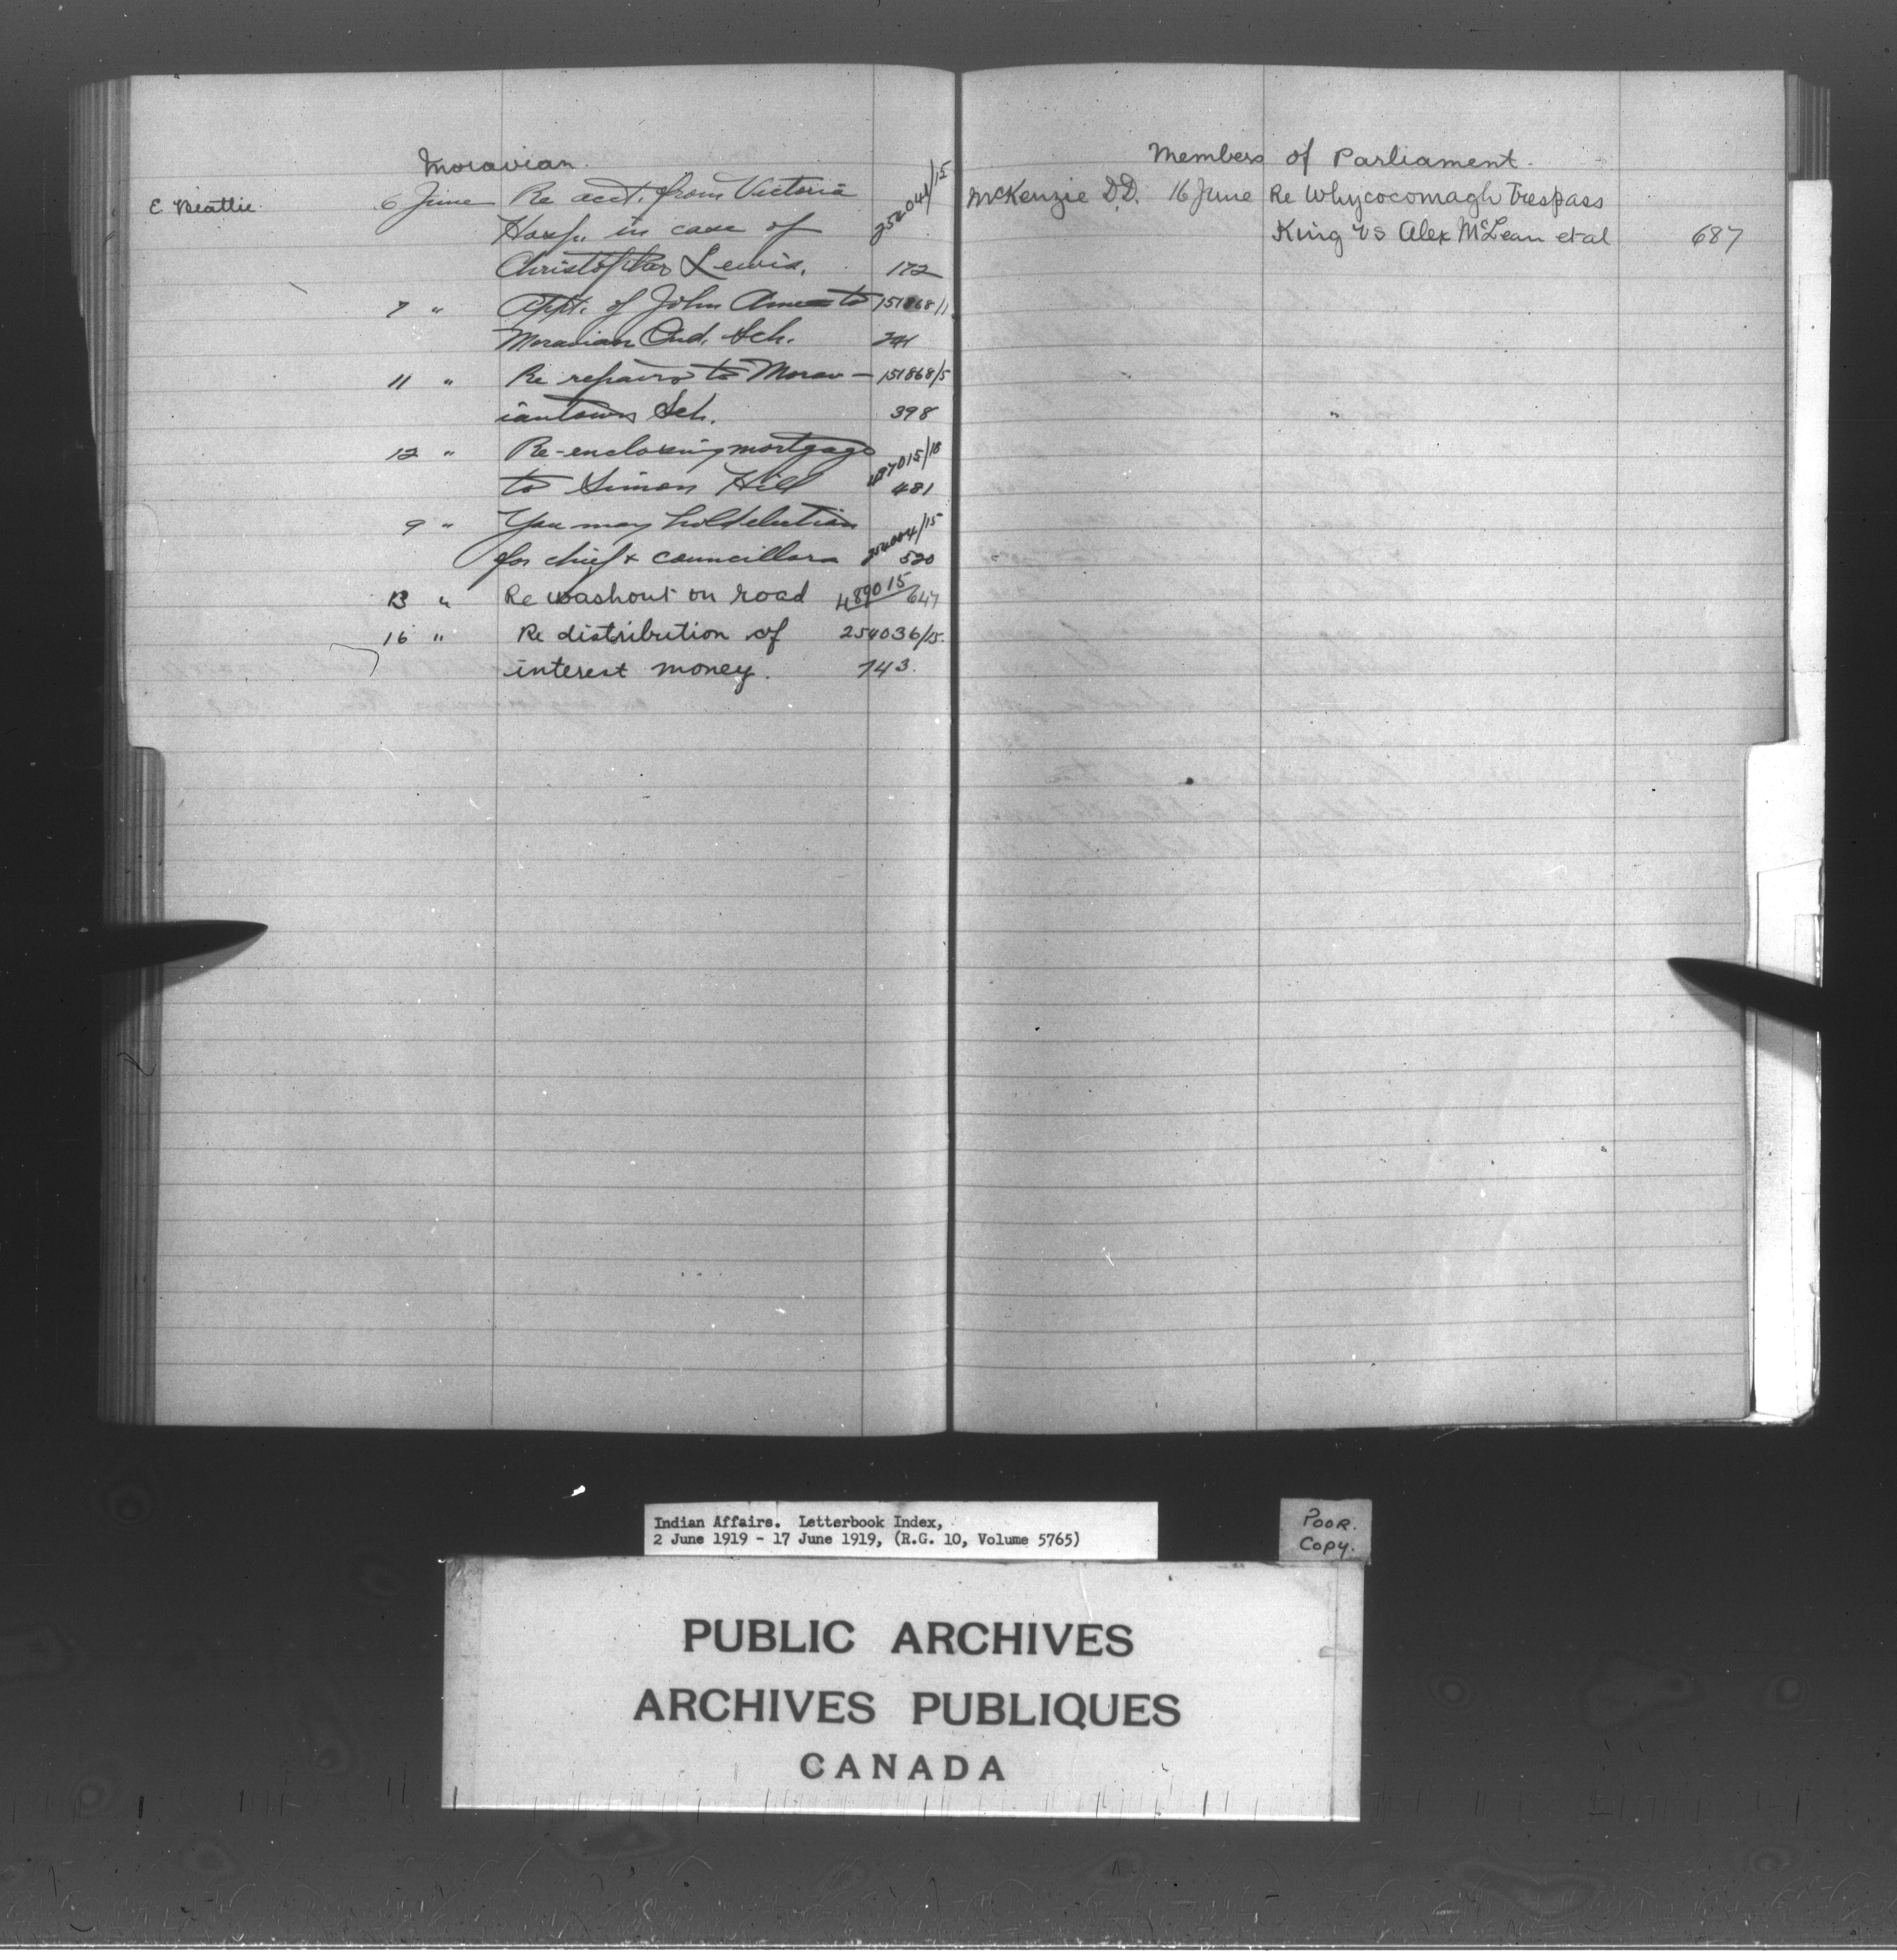 Moravian.
E Beattie. 6 June Re acct. from Victoria
Hosp. in case of
Christopher Lewis. 172
7 " Appt. of John to 151868/11
Moravian Ind. Sch.
11 " Re repairs to Morav- 151868/5
iantown Sch. 398
12 " Re-enclosing mortgage
to Simon Hill 481
9 " You may hold election
for chief & councillors 520
13 " Re washout on road 647
16 " Re distribution of 254036/15.
interest money. 743.
Members of Parliament.
McKenzie D.D. 16 June Re Whycocomagh Trespass
King vs Alex McLean et al 687
Indian Affairs. Letterbook Index,
2 June 1919 - 17 June 1919, (R.G. 10, Volume 5765)
POOR.
Copy.
PUBLIC ARCHIVES
ARCHIVES PUBLIQUES
CANADA